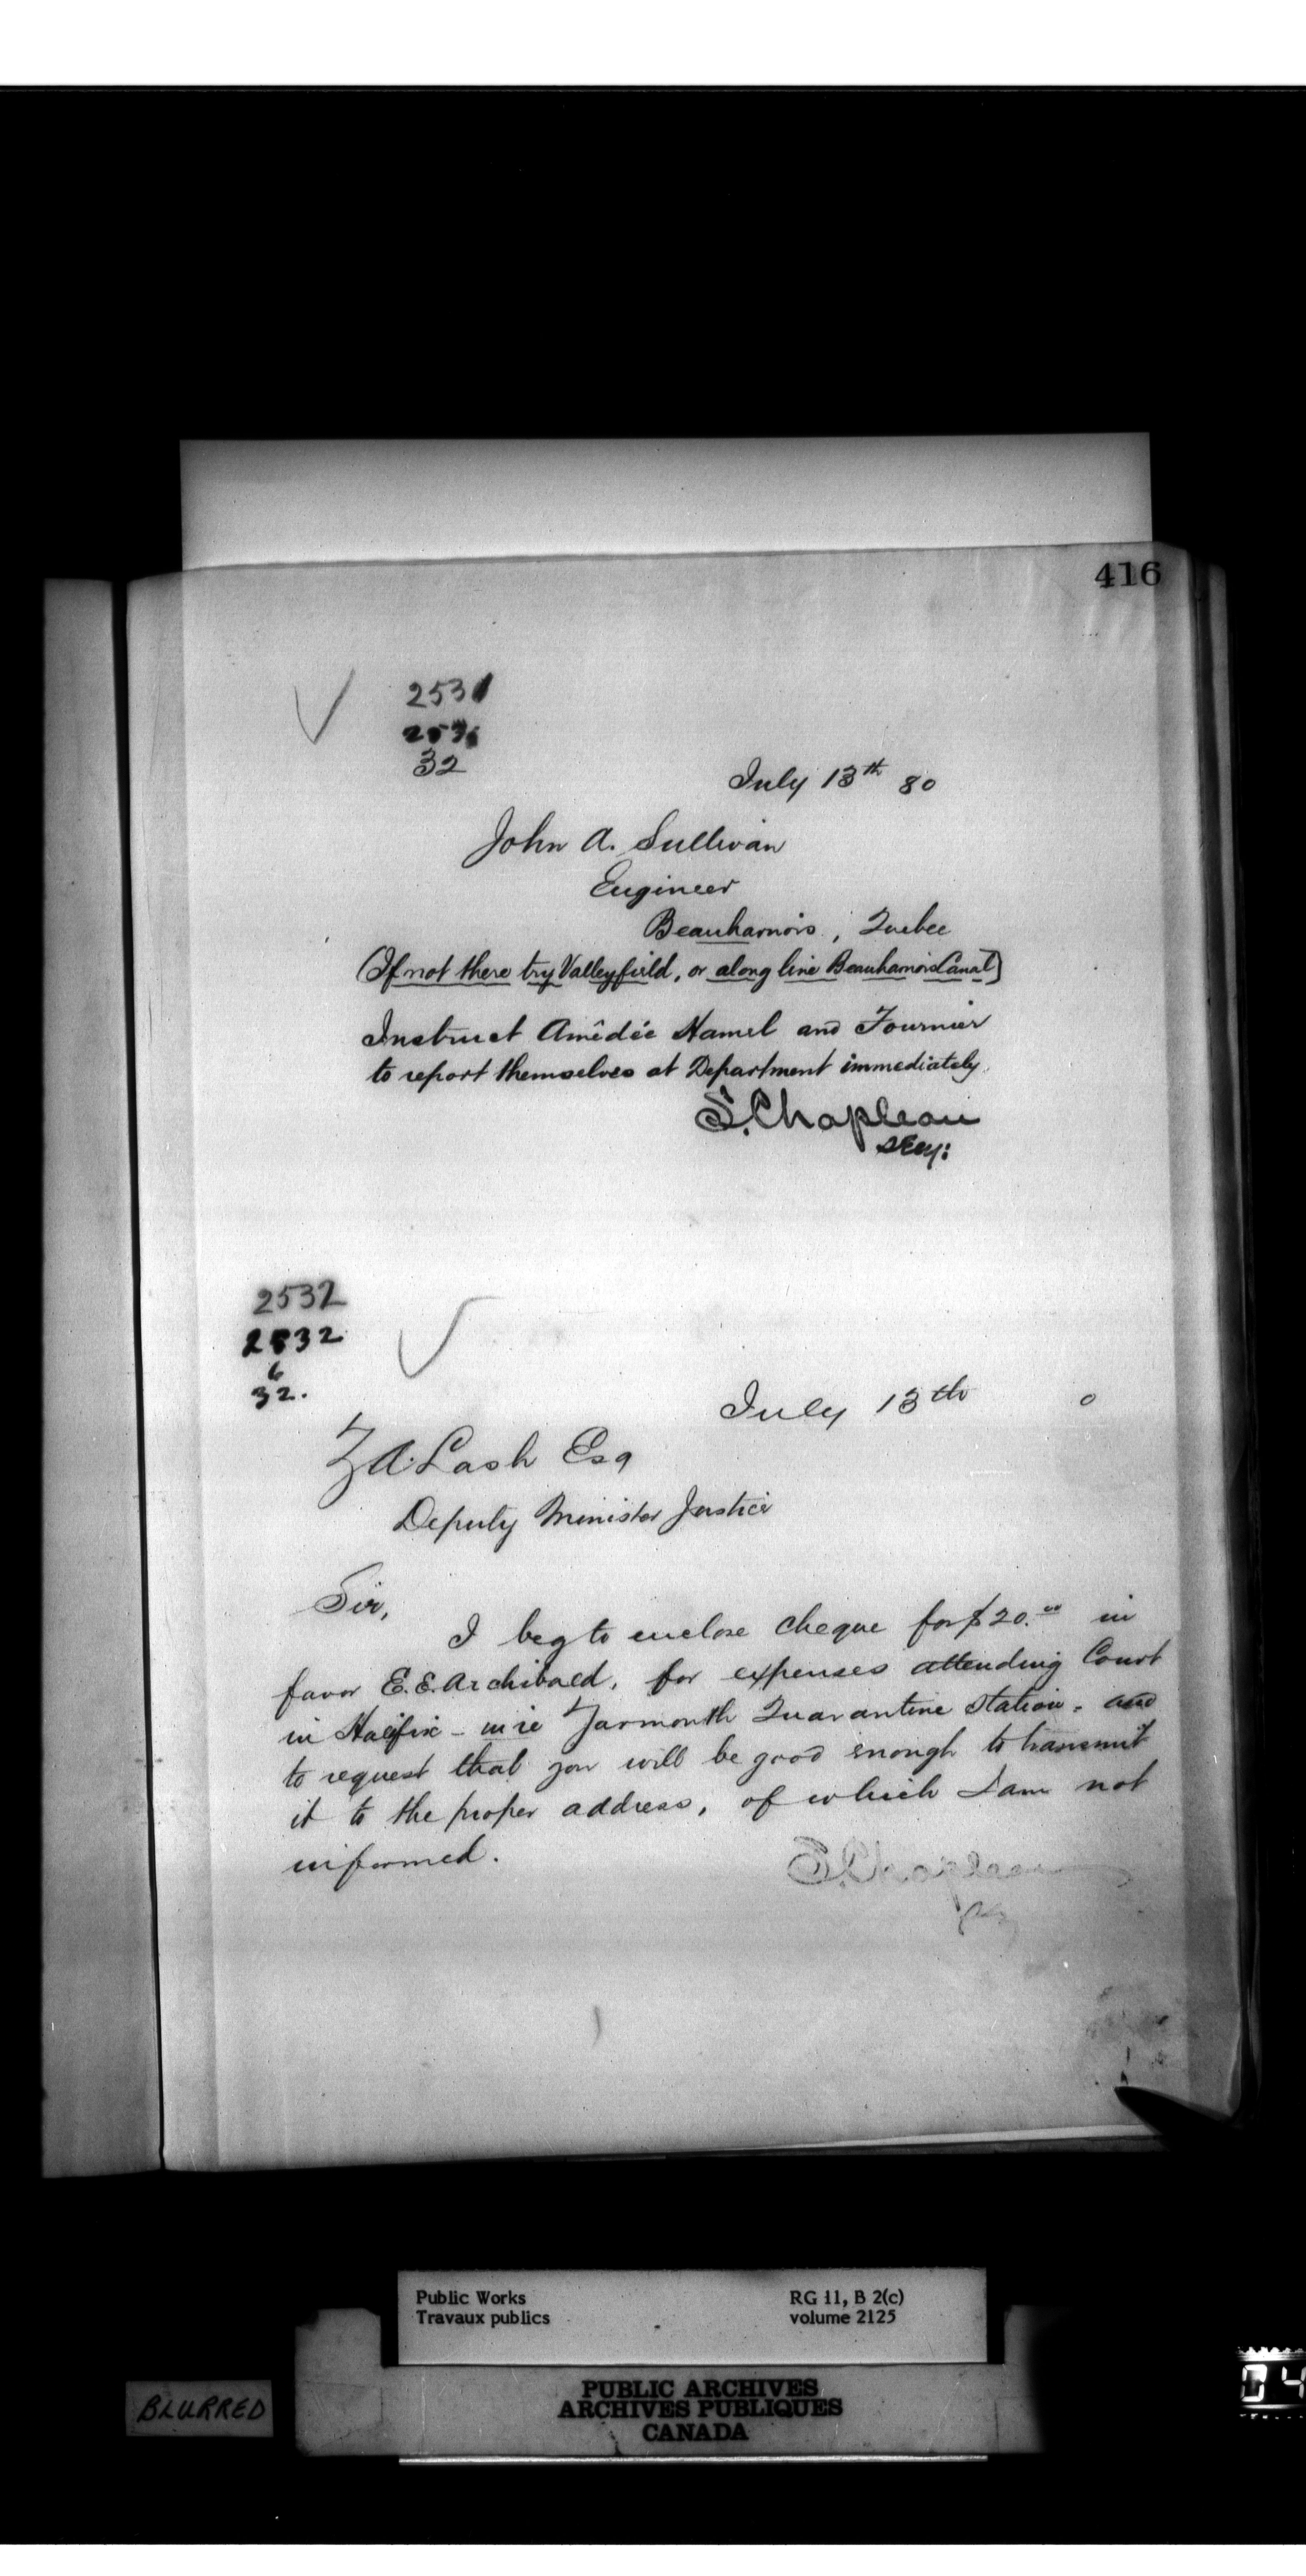 416
2531
32
July 13th 80
John A. Sullivan
Engineer
Beauharnois, Quebec
(If not there try Valleyfield, or along line Beauharnois Canal)
Instruct Amêdée Hamel and Fournier
to report themselves at Department immediately.
S. Chapleau
Secy:
2532
2532
6
32.
July 13th 0
Z A. Lash Esq
Deputy Minister Justice
Sir,
I beg to enclose cheque for $20.00 in
favor E. E. Archibald, for expenses attending Court
in Halifix - in re Yarmouth Quarantine Station, and
to request that you will be good enough to transmit
it to the proper address, of which I am not
informed.
S. Chapleau
Public Works
Travaux publics
RG 11, B 2(c)
volume 2125
BLURRED
PUBLIC ARCHIVES
ARCHIVES PUBLIQUES
CANADA
04